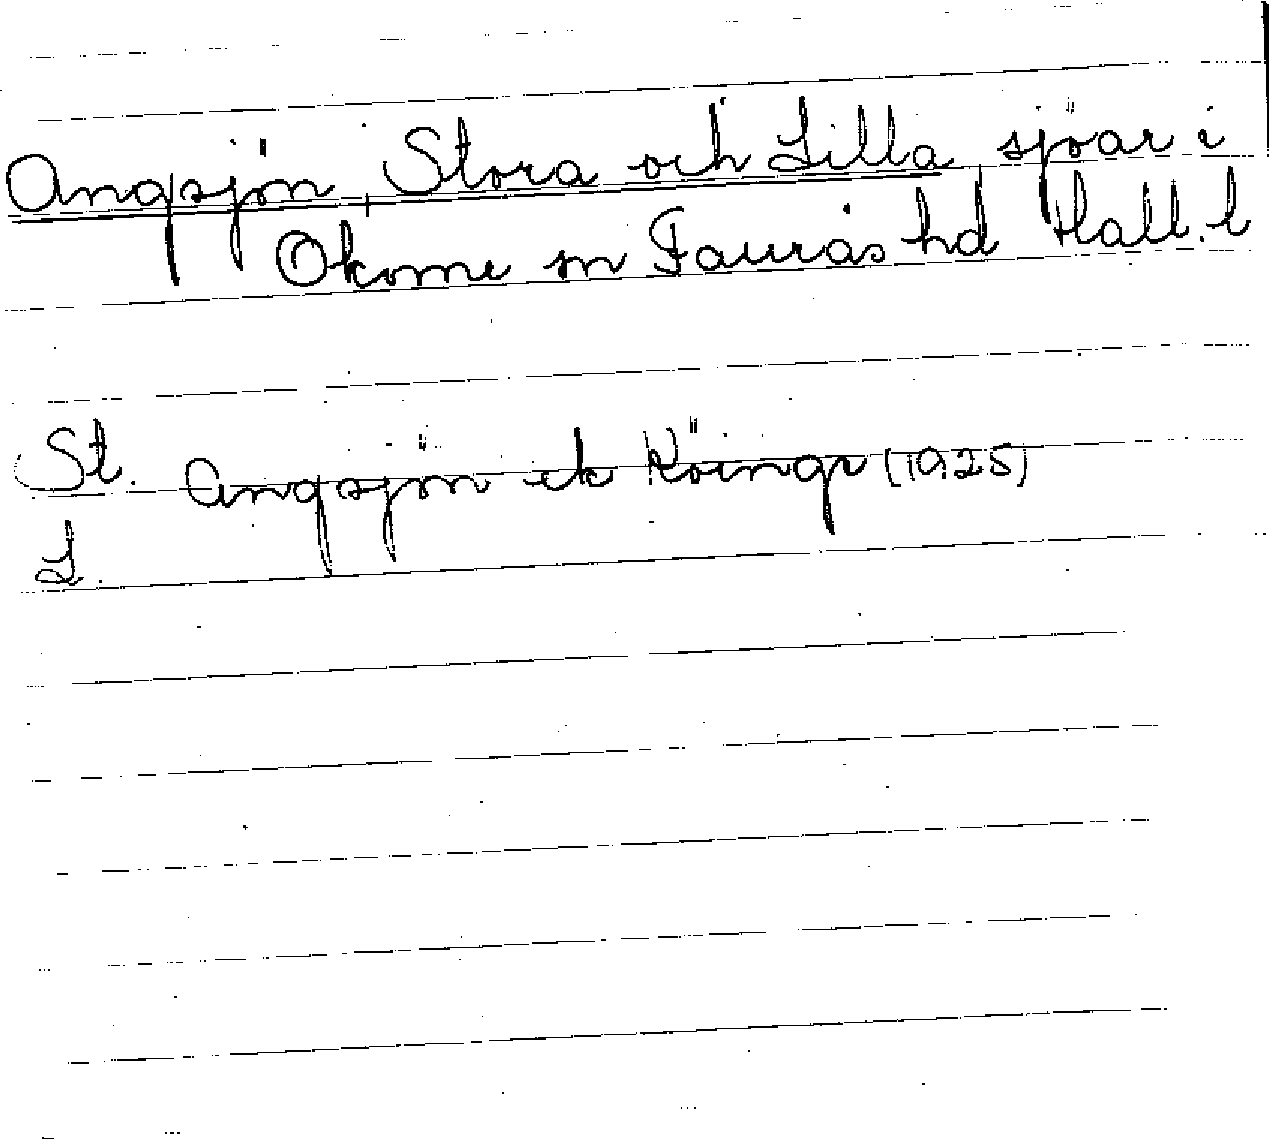 Angsjön, Stora och Lilla sjöar i
Okome sn Faurås hd Hall. l
St. Angsjön ek Köinge (1925)
L.